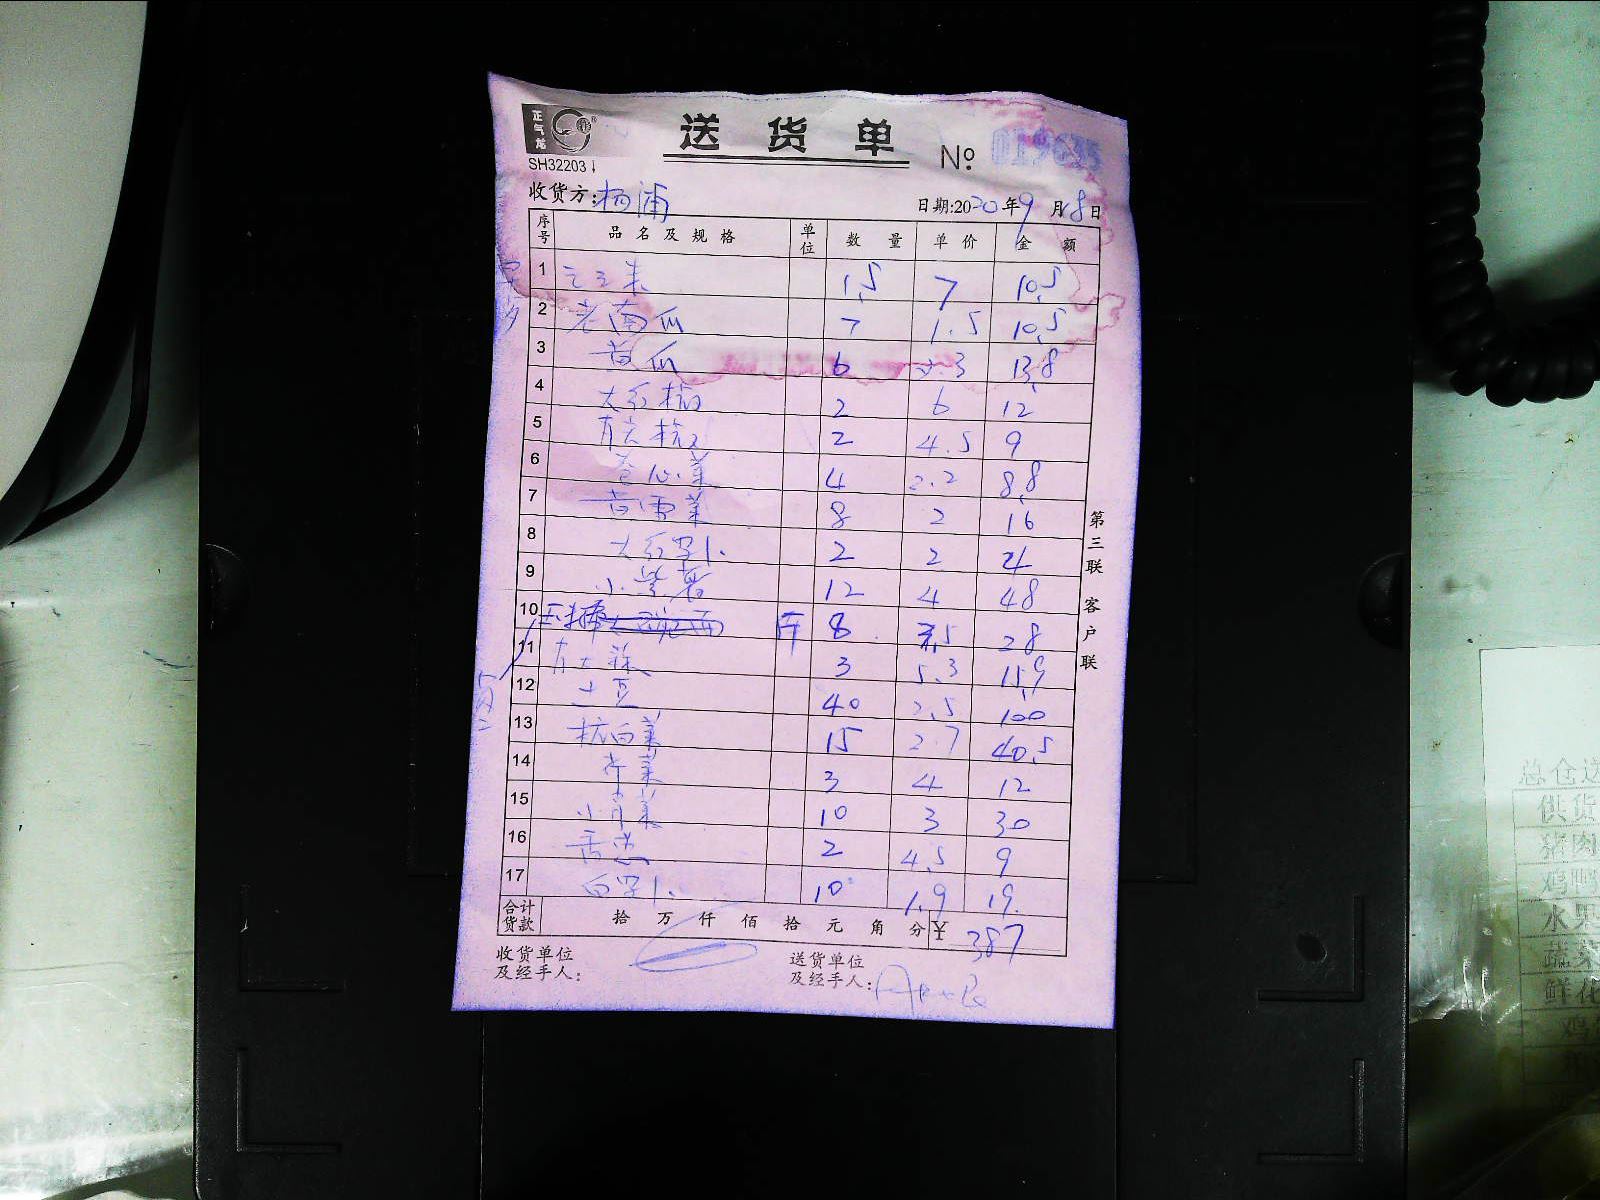 正气龙
SH32203
送货单 №
收货方: 杨浦 日期:2020年9月18日
序号 品名及规格 单位 数量 单价 金额
1 1.5 7 10.5
2 老南瓜 7 1.5 10.5
3 黄瓜 6 2.3 13.8
4 大红椒 2 6 12
5 青尖椒 2 4.5 9
6 卷心菜 4 2.2 8.8
7 2 8 16
8 2 2 4
9 小紫薯 12 4 48
10 玉棒 斤 8 3.5 28
11 青大蒜 3 5.3 15.9
12 土豆 40 2.5 100
13 杭白菜 15 2.7 40.5
14 芹菜 3 4 12
15 小青菜 10 3 30
16 香葱 2 4.5 9
17 10 1.9 19
合计货款 拾 万 仟 佰 拾 元 角 分 ¥ 387
收货单位及经手人: 送货单位及经手人:
第三联 客户联
总仓送
供货
猪肉
鸡鸭
水果
蔬菜
鲜花